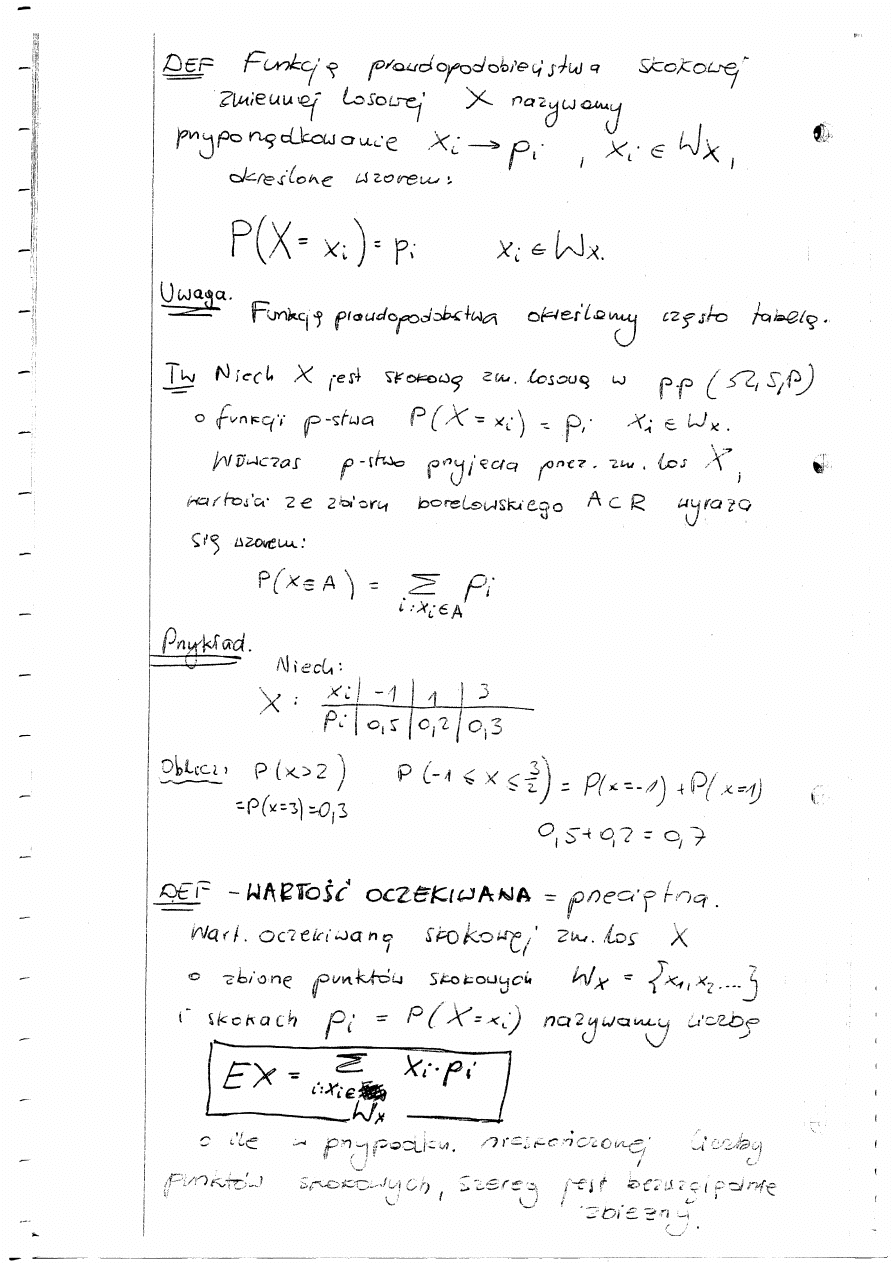 DEF Funkcję prawdopodobieństwa skokowej
zmiennej losowej X nazywamy
przyporządkowanie xi → pi , xi ∈ Wx,
określone wzorem:
P(X = xi) = pi xi ∈ Wx.
Uwaga.
Funkcję prawdopodobstwa określamy często tabelą.
Tw Niech X jest skokową zm. losową w p.p (Ω, S, P)
o funkcji p-stwa P(X = xi) = pi xi ∈ Wx.
Wówczas p-stwo przyjęcia przez. zm. los X,
wartości ze zbioru borelowskiego A ⊂ R wyraża
się wzorem:
P(X ∈ A) = Σ pi
i: xi ∈ A
Przykład.
Niech:
X: xi | -1 | 1 | 3
pi | 0,5 | 0,2 | 0,3
Oblicz: P(x>2) P(-1 ≤ x ≤ 3/2) = P(x=-1) + P(x=1)
=P(x=3)=0,3
0,5+0,2 = 0,7
DEF - WARTOŚĆ OCZEKIWANA = przeciętna.
Wart. oczekiwaną skokowej zm. los X
o zbiorze punktów skokowych Wx = {x1, x2 ....}
i skokach pi = P(X=xi) nazywamy liczbę
EX = Σ xi · pi
i: xi ∈
Wx
o ile w przypadku. nieskończonej liczby
punktów skokowych, szereg jest bezwzględnie
zbieżny.